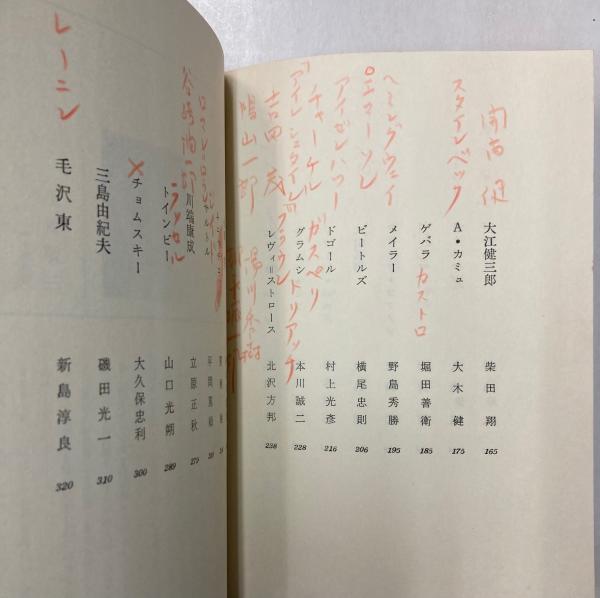 開高健
大江健三郎 柴田翔 165
スタインベック
A・カミュ 大木健 175
ゲバラ カストロ 堀田善衛 185
ヘミングウェイ
メイラー 野島秀勝 195
ビートルズ 横尾忠則 206
アイゼンハワー
ドゴール 村上光彦 216
チャーチル ガスペリ
グラムシ トリアッチ 本川誠二 228
吉田茂
レヴィ=ストロース 北沢方邦 238
鳩山一郎 湯川秀樹
ロマン=ロラン
サルトル 平岡篤頼
谷崎潤一郎
川端康成 立原正秋 275
トインビー ラッセル 山口光朔 289
×チョムスキー 大久保忠利 300
三島由紀夫 磯田光一 310
レーニン
毛沢東 新島淳良 320